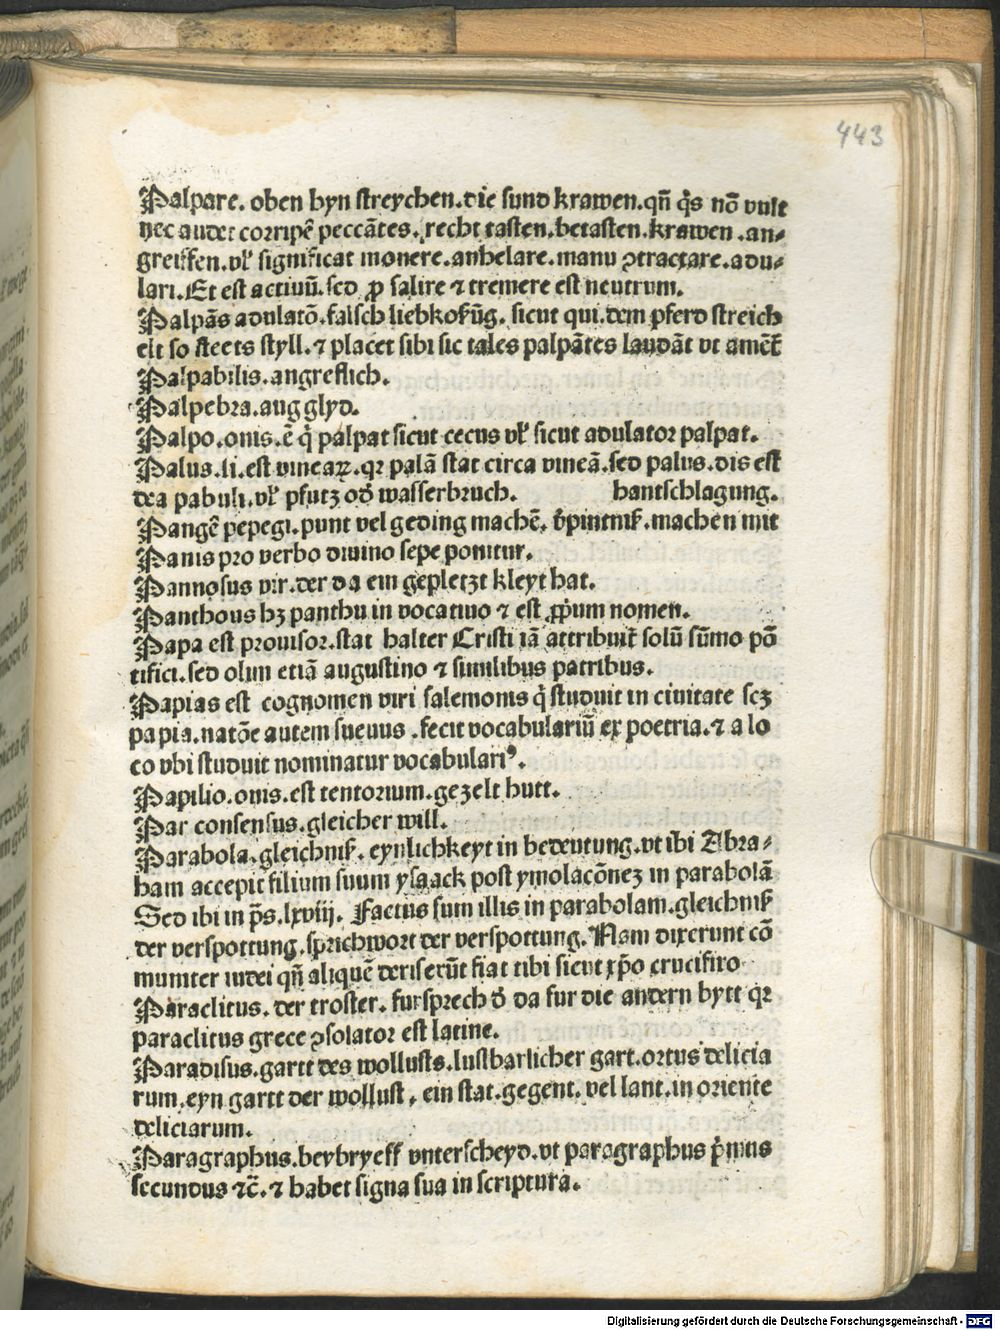 443
Palpare. oben hyn streychen. die sund krawen. qñ q̇s nō vult
nec audet corripē peccātes. recht tasten. betasten. krawen. an⸗
greiffen. vl' significat monere. anhelare. manu ꝯtractare. adu⸗
lari. Et est actiuū. sed ꝓ salire ⁊ tremere est neutrum.
Palpās adulatō. falsch liebkosūg. sicut qui dem pferd streich
elt so steets styll. ⁊ placet sibi sic tales palpātes laudāt vt amēt̄
Palpabilis. angreflich.
Palpebra. aug glyd.
Palpo. onis. ē q̇ palpat sicut cecus vl' sicut adulator palpat.
Palus. li. est vineaꝝ. qꝛ palā stat circa vineā. sed palus. dis est
dea pabuli. vl' pfutz oď wasserbruch. hantschlagung.
Pangē pepegi. punt vel geding machē. v̇pintniß. machen mit
Panis pro verbo diuino sepe ponitur.
Pannosus vir. der da ein gepletzt kleyt hat.
Panthous hꝫ panthu in vocatiuo ⁊ est ꝓp̄um nomen.
Papa est prouisor. stat halter Cristi iā attribuit̄ solū sūmo pō
tifici. sed olim etiā augustino ⁊ similibus patribus.
Papias est cognomen viri salemonis q̇ studuit in ciuitate scꝫ
papia. natōe autem sueuus. fecit vocabulariū ex poetria. ⁊ a lo
co vbi studuit nominatur vocabulariꝰ.
Papilio. onis. est tentorium. gezelt hutt.
Par consensus. gleicher will.
Parabola. gleichniß. eynlichkeyt in bedeutung. vt ibi Abra⸗
ham accepit filium suum ysaack post ymolacōnez in parabolā
Sed ibi in p̄s. lxviij. Factus sum illis in parabolam. gleichniß
der verspottung. sprichwort der verspottung. Nam dixerunt cō
muniter iudei qñ aliquē deriserūt fiat tibi sicut xp̄o crucifixo
Paraclitus. der troster. fursprech ď da fur die andern bytt qꝛ
paraclitus grece ꝯsolator est latine.
Paradisus. gartt des wollusts. lustbarlicher gart. ortus delicia
rum. eyn gartt der wollust, ein stat. gegent. vel lant. in oriente
deliciarum.
Paragraphus. beybryeff vnterscheyd. vt paragraphus ṗmus
secundus ⁊c̄. ⁊ habet signa sua in scriptura.
Digitalisierung gefördert durch die Deutsche Forschungsgemeinschaft - DFG